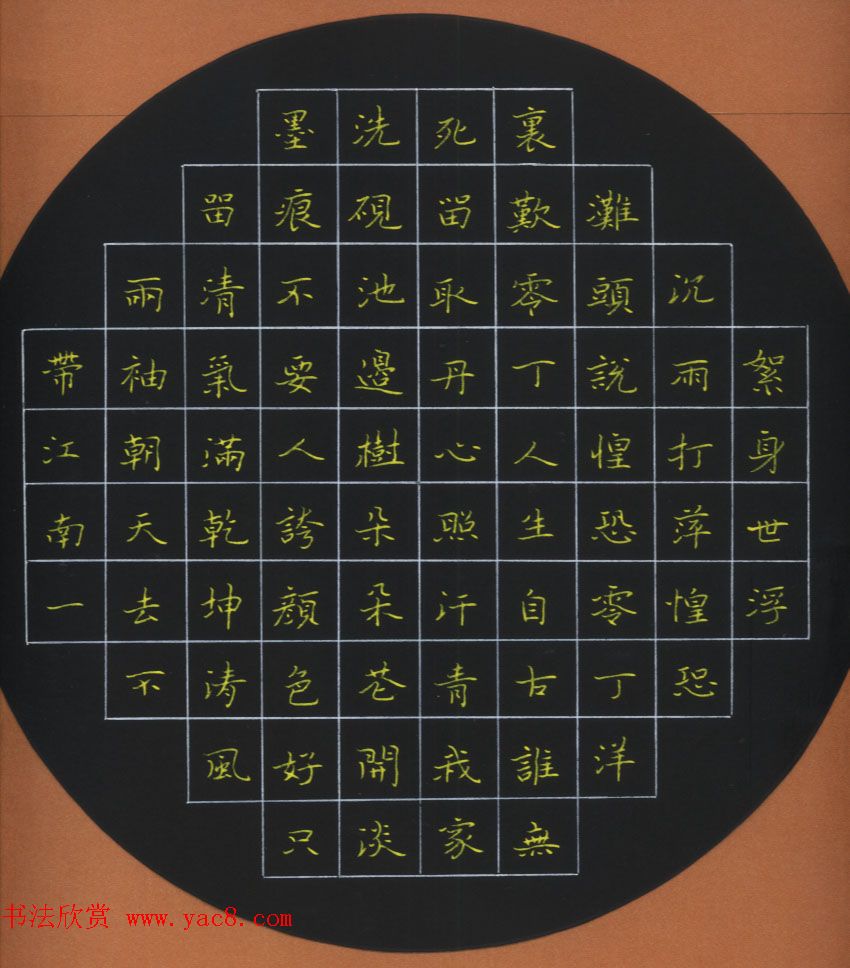 絮身世浮
沉雨打萍惶恐
灘頭說惶恐零丁洋
裏歎零丁人生自古誰無
死留取丹心照汗青我家
洗硯池邊樹朵朵花開淡
墨痕不要人誇顏色好只
留清氣滿乾坤清風
兩袖朝天去不
帶江南一
书法欣赏 www.yac8.com